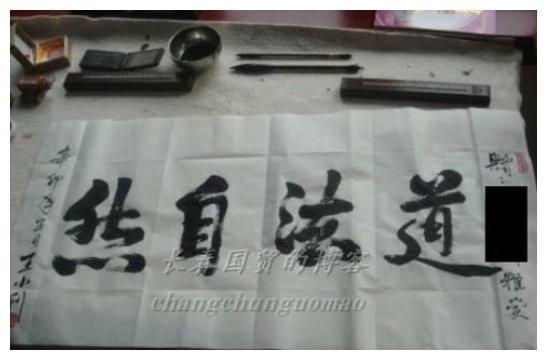 道法自然
雅受
辛卯年
长春国贸的博客
changchunguomao